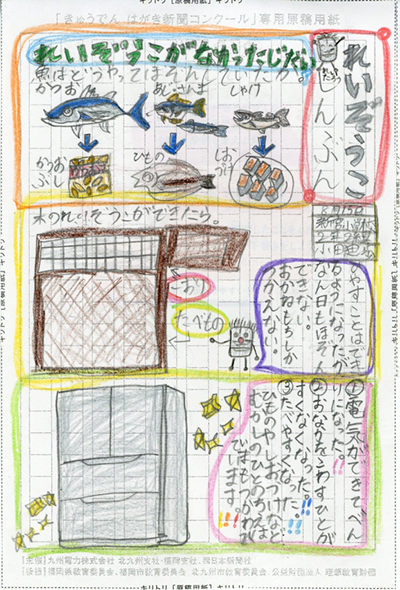 キリトリ【原稿用紙】キリトリ
「きゅうでん はがき新聞コンクール」専用原稿用紙
れいぞうこ
しんぶん
れいぞうこがなかったじだい
魚はどうやってほぞんしていたか。
かつお
あじ
さんま
しゃけ
かつおぶし
ひもの
しおづけ
木のれいぞうこができたら。
こおり
たべもの
ひやすことはでき
るようになったが
なん日もほぞん
できない。
おかねもちしか
つかえない。
①電気ができてべん
りになった。!!
②おなかをこわすひとが
すくなくなった。!!
③たべやすくなった。!!
ひものやしおづけなど
むかしのひとのちえは
いまもつかわれ
ています。!!
[主催]九州電力株式会社 北九州支社・福岡支社、西日本新聞社
[後援]福岡県教育委員会、福岡市教育委員会、北九州市教育委員会、公益財団法人 理想教育財団
キリトリ【原稿用紙】キリトリ